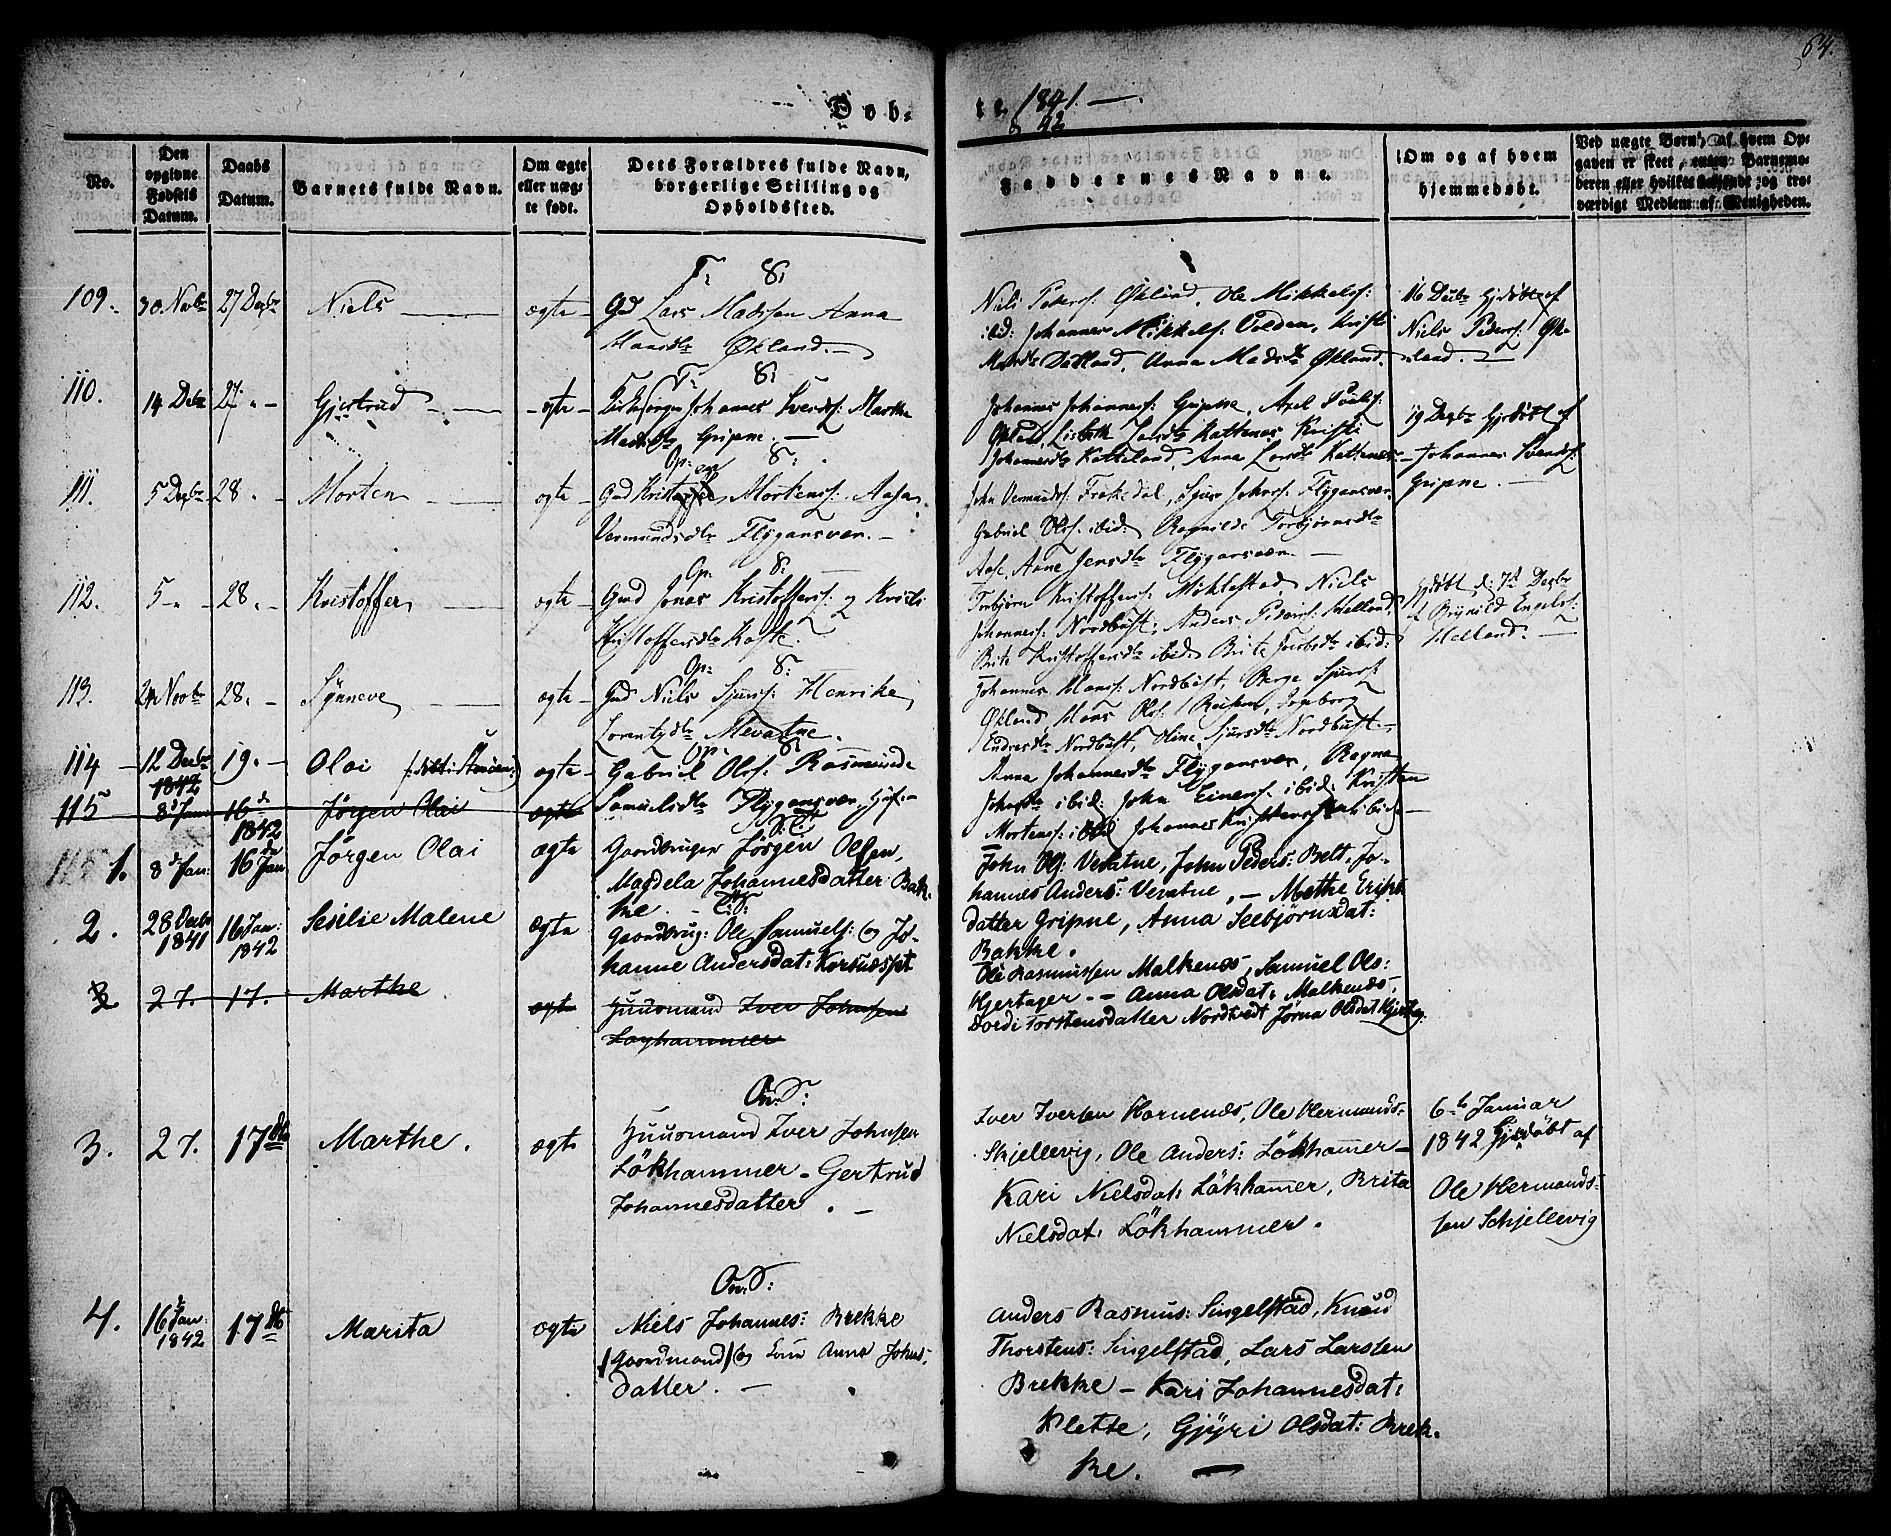 64.
Døb-
te 1841.
& 42
No.
Den
opgivne
Fødsels
Datum.
Daabs
Datum.
Barnets fulde Navn.
Om ægte
eller uæg-
te født.
Dets Forældres fulde Navn,
borgerlige Stilling og
Opholdssted.
Faddernes Navne.
Om og af hvem
hjemmedøbt.
Ved uægte Børn, af hvem Op-
gaven er skeet, enten Barnemo-
deren eller hvilket bekjendt og tro-
værdigt Medlem af Menigheden.
T: S:
109. 30 Novbr 27 Decbr Niels ægte Gd Lars Madssen Anna
Hansdtr Økland.
Niels Peders: Økland, Ole Mikkels:
ibid: Johannes Mikkels: Volden, Kristi
Madsdtr Dalland, Anna Madsdtr Økland.
16 Decbr Hjdøbt af
Niels Peders: Øk-
land.
T: S:
110. 14 Decbr 27. Gjertrud ægte Johannes Svends: Marthe
Madsdtr Gripne.
Johannes Johannes: Gripne, Axel Pouls:
Økland, Lisbeth Larsdtr Kattenes Kristi
Johannesdtr Katteland, Anna Larsdtr Kattenes
19 Decbr Hjdøbt af
Johannes Svends:
Gripne.
Op: S:
111. 5 Decbr 28. Morten ægte Gd Kristoffer Mortens: Aasa
Vermundsdtr Flygansvær.
John Vermunds: Frakedal, Sjur Johns: Flygansvær,
Gabriel Ols: ibid: Ragnilde Torbjørnsdtr
Aase, Anne Jensdtr Flygansvær.
Op: S:
112. 5 28. Kristoffer ægte Gmd Jonas Kristoffers: og Kristi
Kristoffersdtr Koste.
Torbjørn Kristoffersen Miklestad, Niels
Johannes: Nordbust, Anders Peders: Helland,
Brite Kristoffersdtr ibid: Brite Jacobsdtr ibid:
Hjdøbt d: 7d Decbr
af Brynild Engels:
Helland.
Op: S:
113. 24 Novbr 28. Synneve ægte Gd Niels Sjurs: Henrike
Lorentsdtr Mevatne.
Johannes Hans: Nordbust, Børge Sjurs:
Økland, Hans Ols: Reisen, Ingeborg
Endresdtr Nordbust, Oline Sjursdtr Nordbust.
Op: S:
114 12 Decbr 19. Olai ægte Gabriel Ols: Rasminede
Samuelsdtr Flygansvær,
Anna Johannesdtr Flygansvær, Ragna
Johnsdtr ibid: John Einers: ibid: Kristen
Mortens: ibid Johannes ibid:
1842
115 8d Jan 16d Jørgen Olai ægte
1842
1. 8d Jan: 16de Jan Jørgen Olai ægte Gaardbruger Jørgen Olsen,
Magdela Johannesdatter Bak-
ke.
John Ols: Vevatne, John Peders: Belt, Jo-
hannes Anders: Vevatne, – Methe Eriks
datter Gripne, Anna Seebjørnsdat:
Bakke.
2. 28 Decbr 1841 16 Jan: 1842 Sesilie Malene ægte Gaardbrug: Ole Samuels: og Jo-
hanne Andersdat: Korsnæsset
Ole Rasmussen Malkenes, Samuel Ols:
Hjertager – Anna Olsdat: Malkenes,
Dordi Torstensdatter Nordtvedt Jørna Olsdat Hjertag.
3 27. 17. Marthe ægte Huusmand Iver Johnsen
Løghammer
Ov. S:
3. 27. 17de Marthe. ægte Huusmand Iver Johnsen
Løkhammer – Gertrud
Johannesdatter.
Iver Iversen Hornenæs, Ole Hermands-
Skjellevig, Ole Anders: Løkhammer –
Kari Nielsdat: Løkhammer, Brita
Nielsdat: Løkhammer.
6te Januar
1842 Hjdøbt af
Ole Hermands-
sen Schjellevig
Ov. S:
4. 16d Jan: 1842 17de Marita ægte Niels Johannes: Brekke
(Gaardmand) og Anna Johns-
datter.
Anders Rasmus: Singelstad, Knud
Thorstens: Singelstad, Lars Larssen
Brekke – Kari Johannesdat:
Klette, Gjyri Olsdat: Brek-
ke.